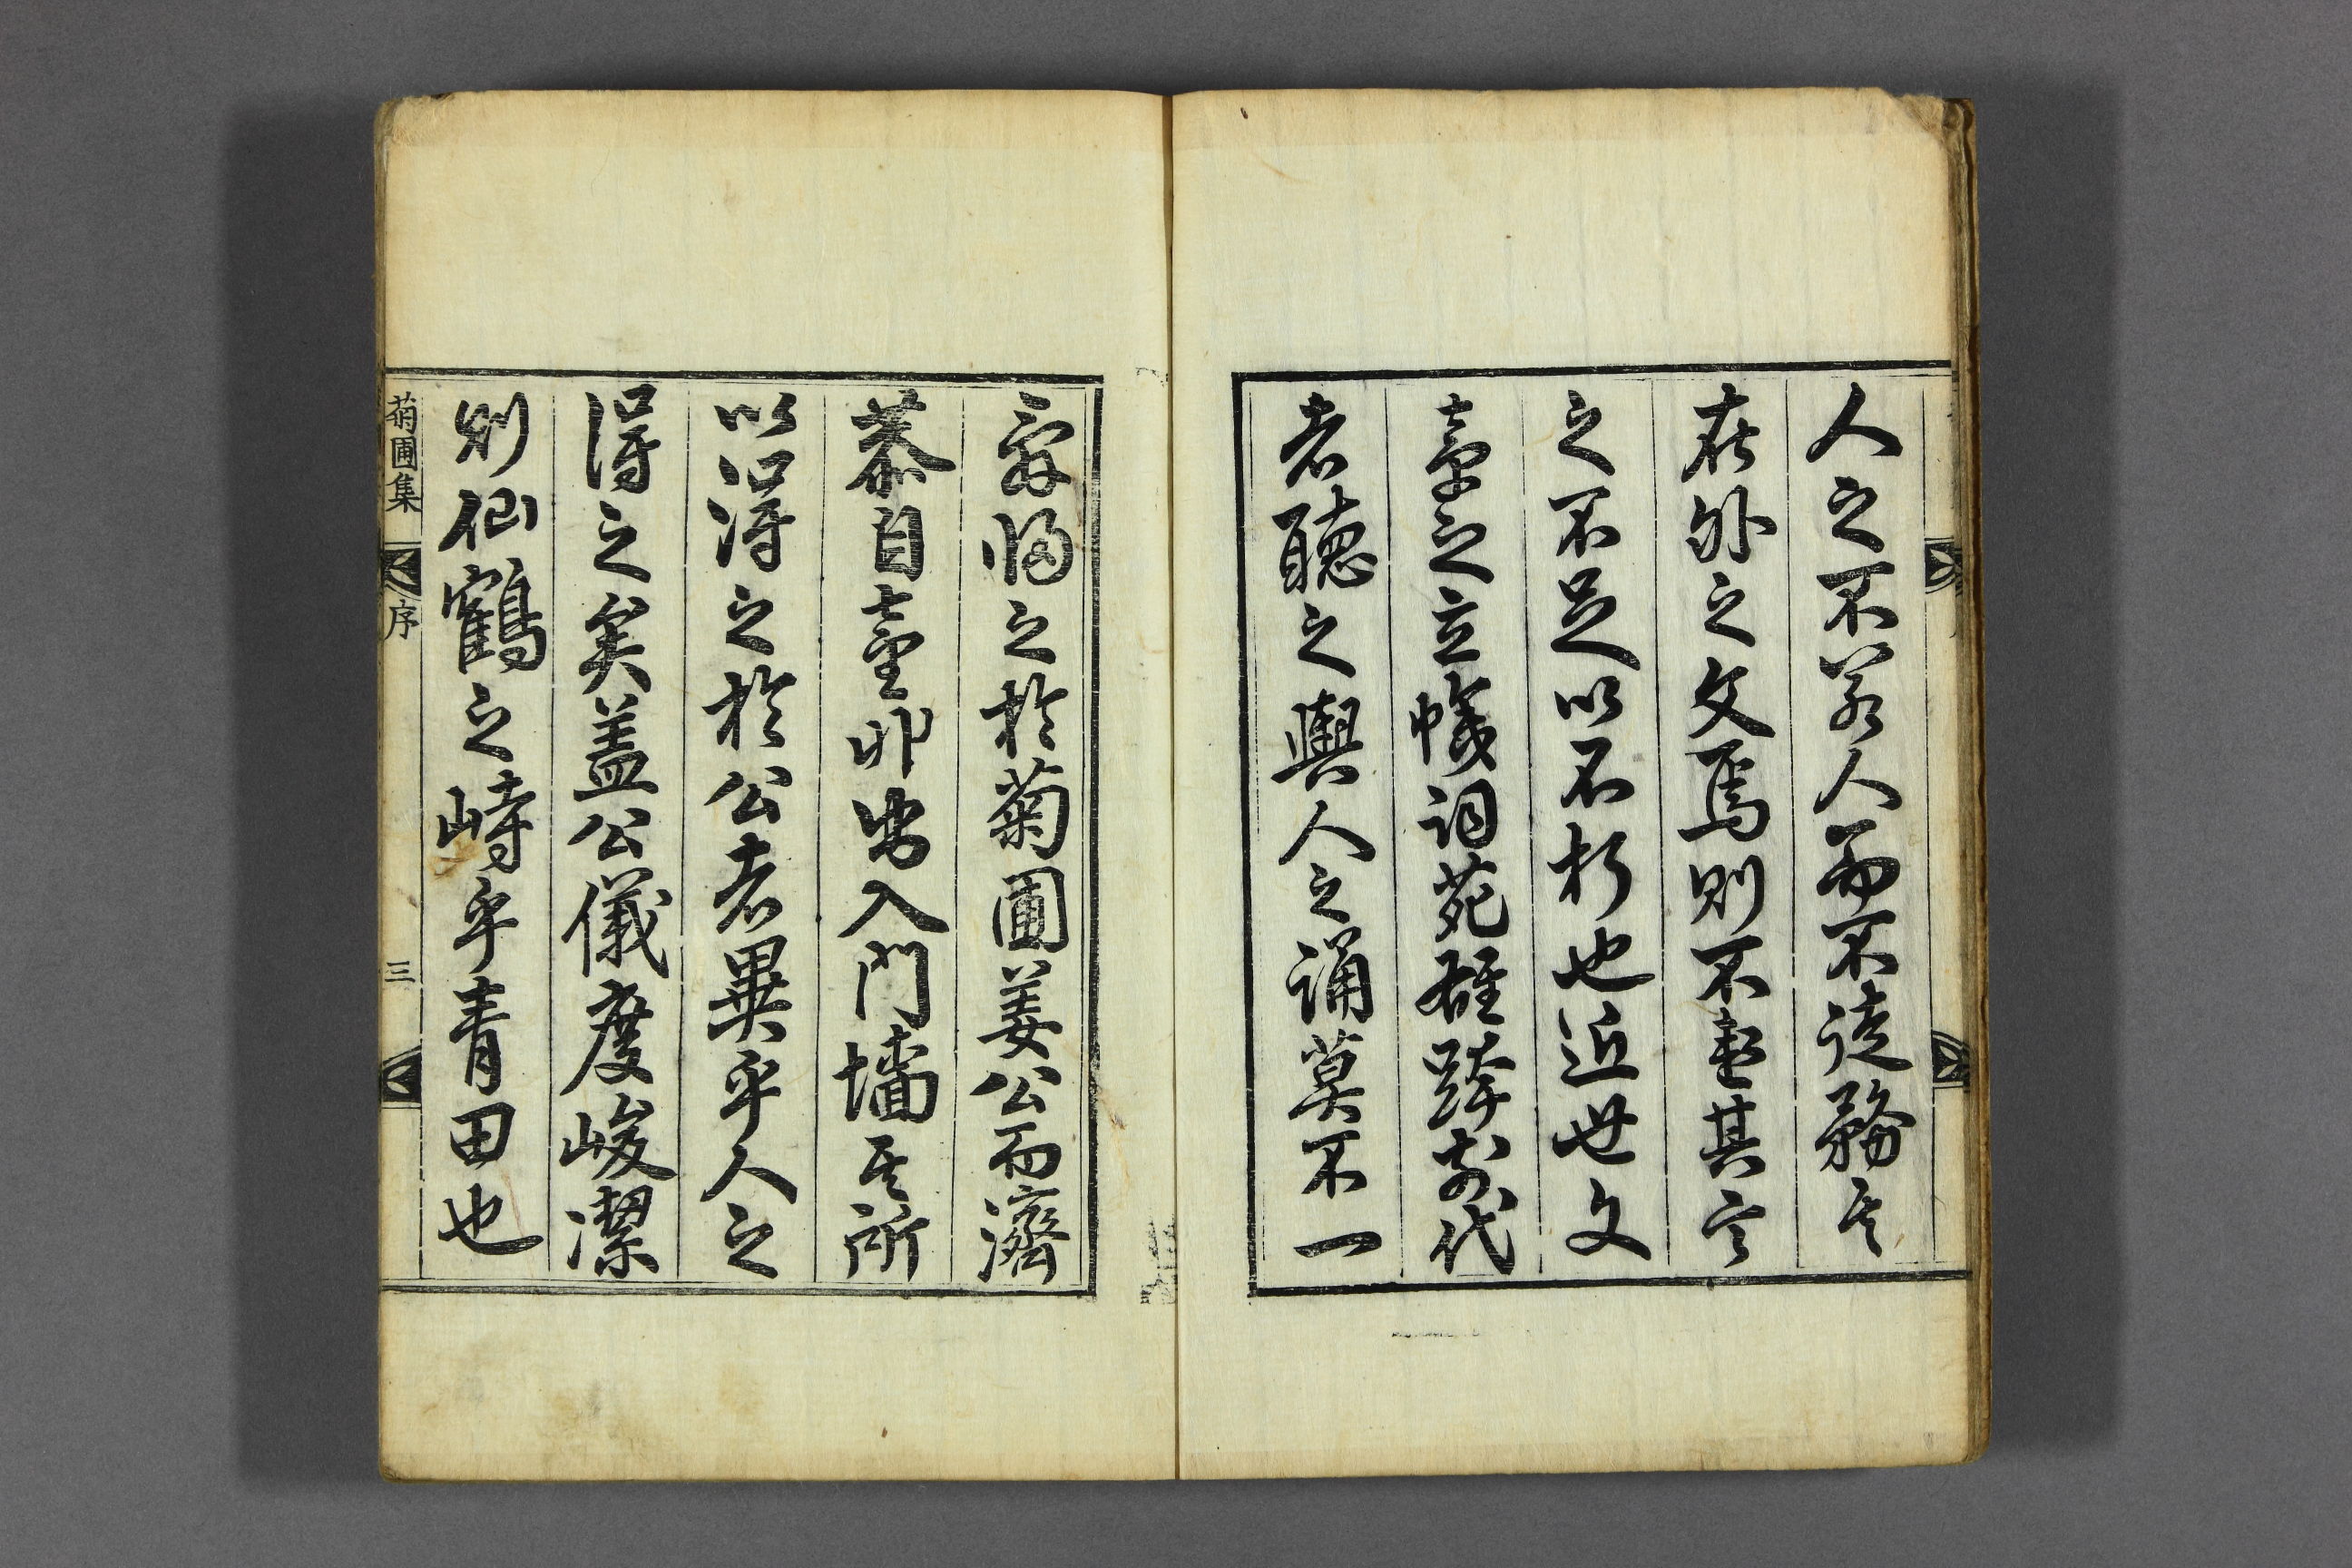 人之不若人而不徒務其
在外之文焉則不患其言
之不足以不朽也近世文
章之立幟詞苑雄跨前代
者聽之輿人之誦莫不一
辭歸之於菊圃姜公而濟
恭自童丱出入門墻其所
以得之於公者異乎人之
得之矣盖公儀度峻潔
則仙鶴之峙乎青田也
菊圃集
序
三